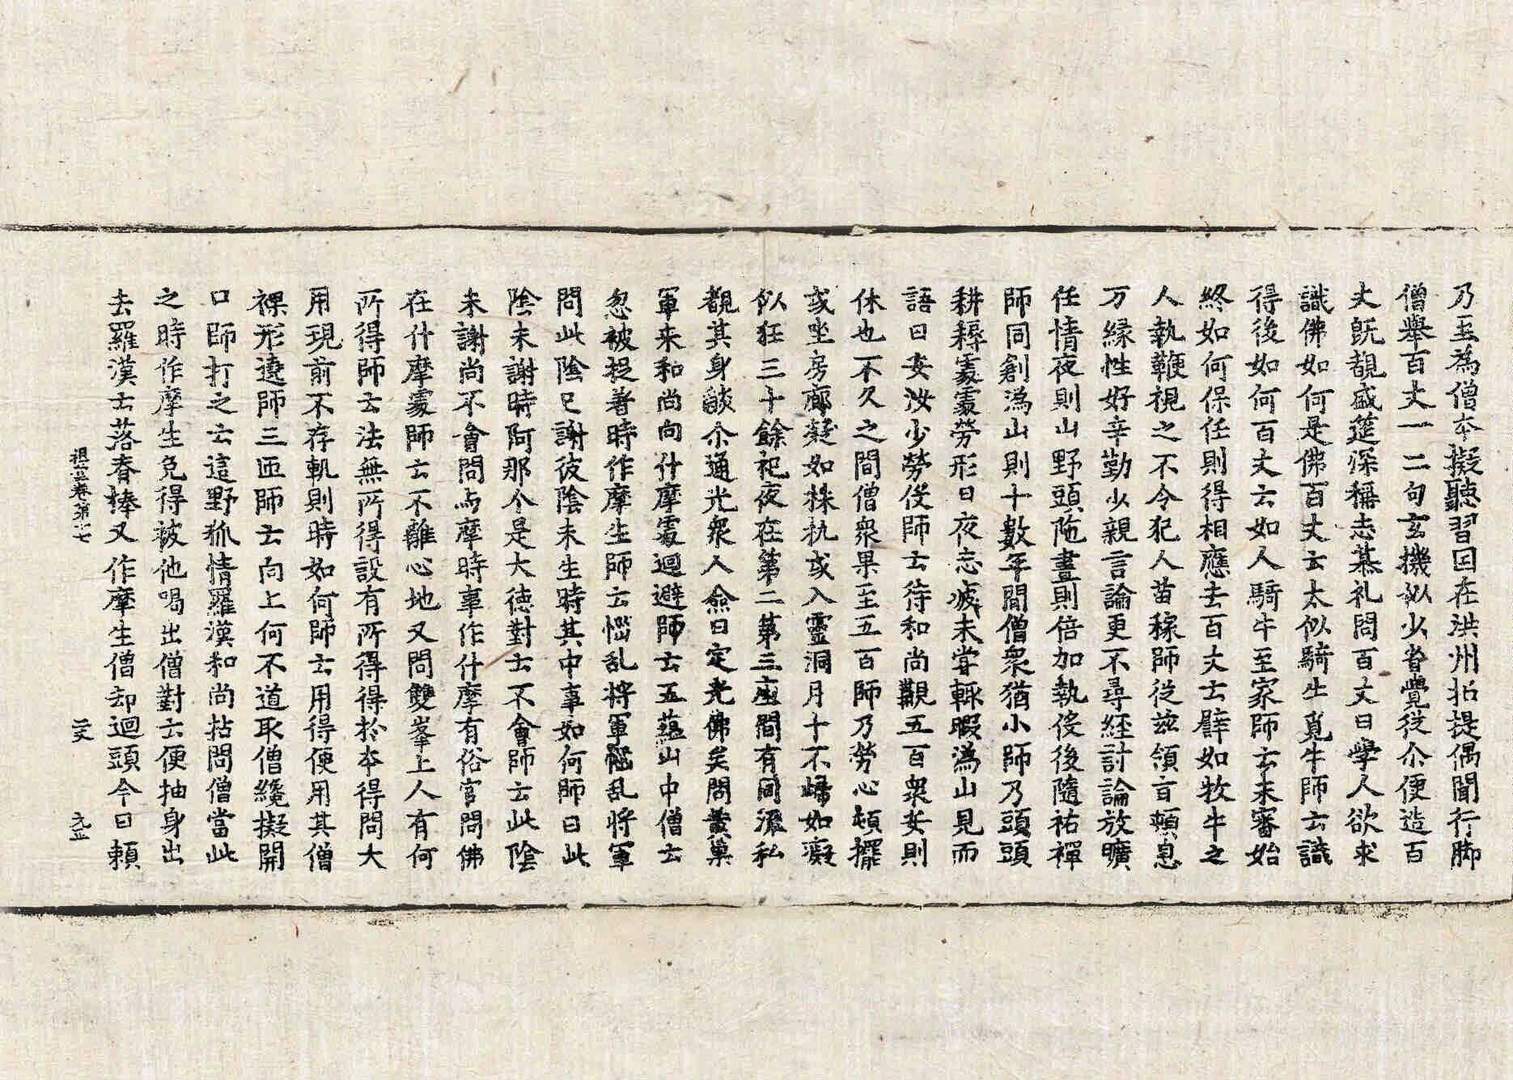 乃至為僧本擬聽習因在洪州招提偶聞行脚
僧舉百丈一二句玄機似少省覺従尒便造百
丈旣覩盛筵深稱志慕礼問百丈曰學人欲求
識佛如何是佛百丈云太似騎牛覓牛師云識
得後如何百丈云如人騎牛至家師云未審始
終如何保任則得相應去百丈云譬如牧牛之
人執鞭視之不令犯人苗稼師従玆領旨頓息
万緣性好辛勤少親言論更不尋經討論放曠
任情夜則山野頭陁晝則倍加執侵後隨祐禪
師同創溈山則十數年間僧衆猶小師乃頭頭
耕耨處處勞形日夜忘疲未甞輙暇溈山見而
語曰安汝少勞侵師云待和尚觀五百衆安則
休也不久之間僧衆果至五百師乃勞心頓擺
或坐房廊凝如株杌或入靈洞月十不歸如癡
似狂三十餘祀夜在第二第三座間有同流私
覩其身談尒通光衆人僉曰定光佛矣問黃巢
軍来和尚向什摩處迴避師云五蘊山中僧云
忽被捉著時作摩生師云惱乱將軍惱乱將軍
問此陰已謝彼陰未生時其中事如何師曰此
陰未謝時阿那个是大德對云不會師云此陰
未謝尚不會問与摩時事作什摩有俗官問佛
在什摩處師云不離心地又問雙峯上人有何
所得師云法無所得設有所得得於本得問大
用現前不存軌則時如何師云用得便用其僧
裸形遶師三匝師云向上何不道取僧纔擬開
口師打之云這野狐情羅漢和尚拈問僧當此
之時作摩生免得被他喝出僧對云便抽身出
去羅漢云落脊棒又作摩生僧却迴頭今日賴
祖堂卷第十七 二丈 九丈